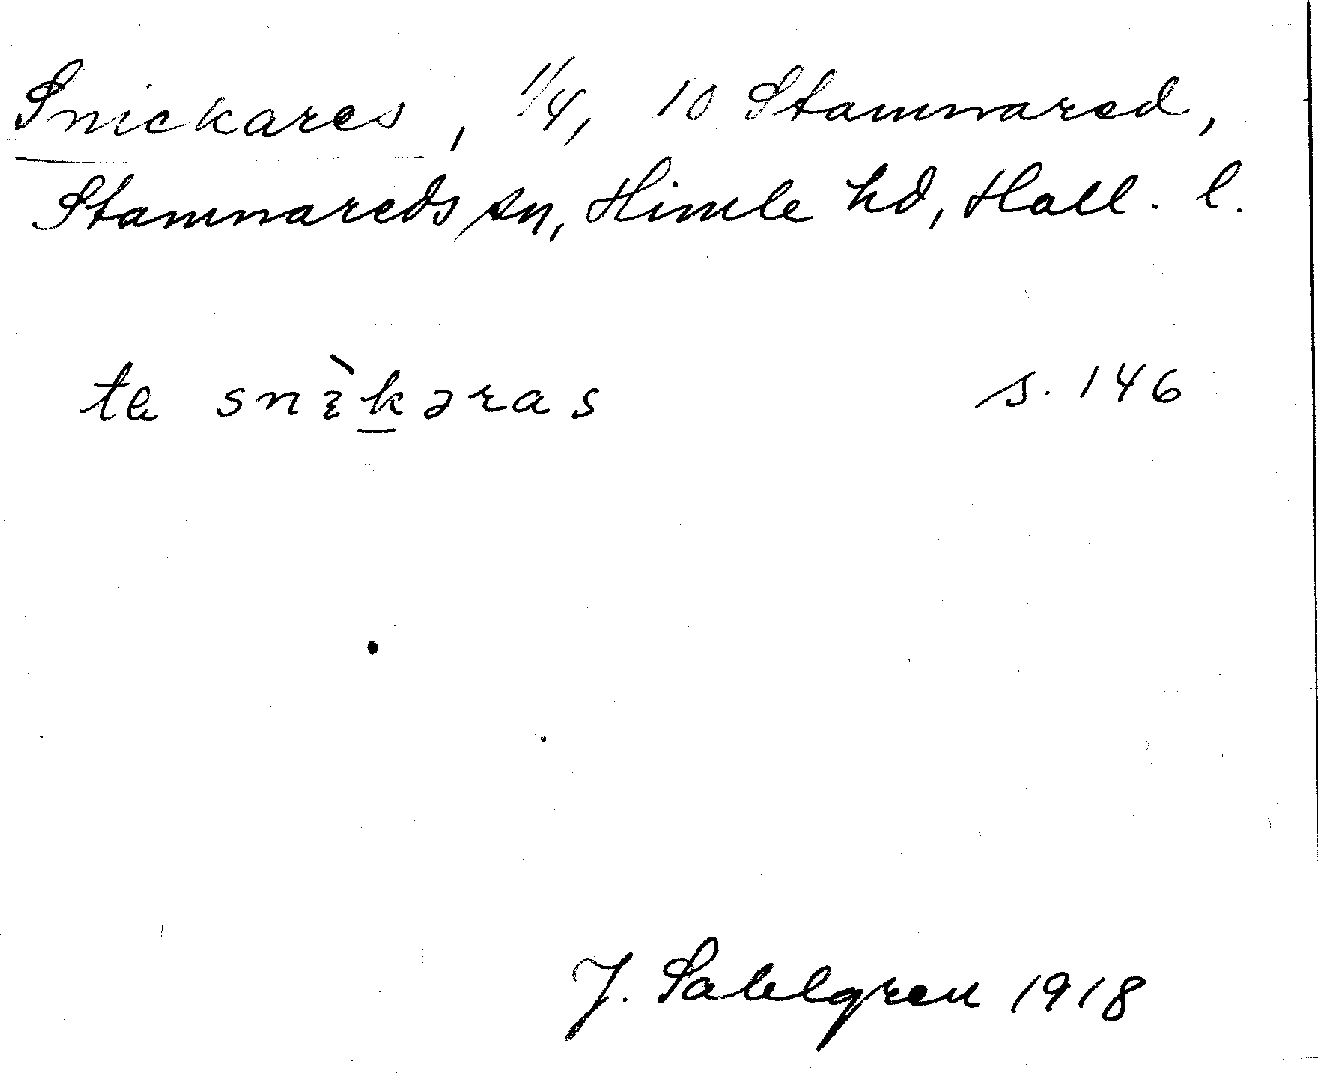 Snickares, 1/4, 10 Stamnared,
Stamnareds sn, Himle hd, Hall. l.
te snìkəras s. 146
J. Sahlgren 1918